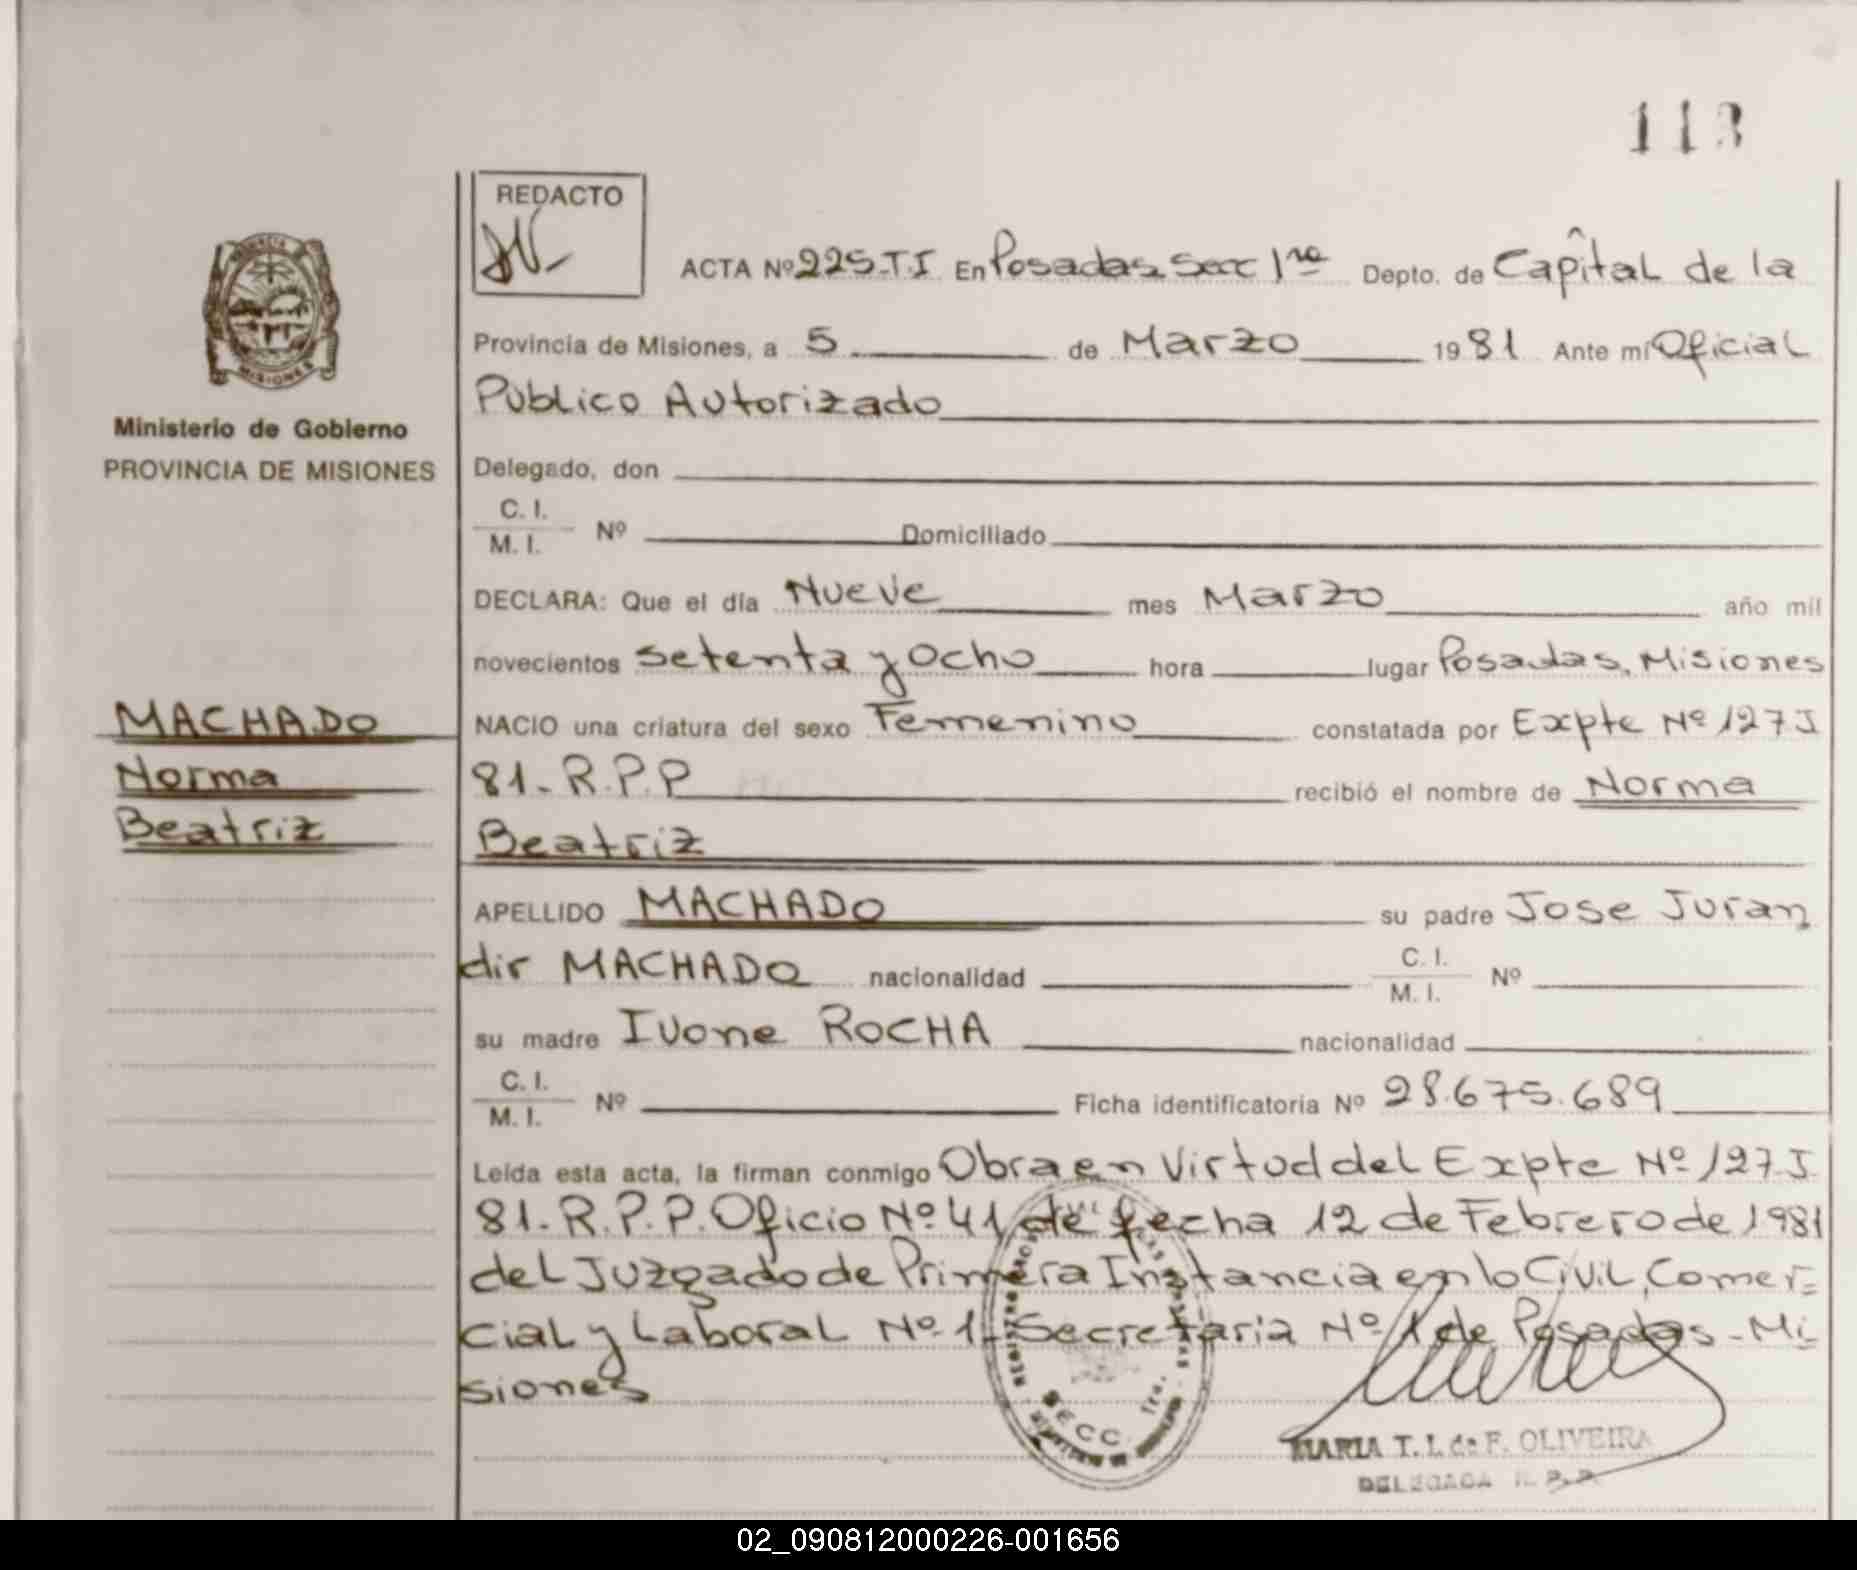 113
REDACTO
ACTA Nº 225-T.I En Posadas Secc 1ra Depto. de Capital de la
Provincia de Misiones, a 5 de Marzo 1981 Ante mí Oficial
Publico Autorizado
Ministerio de Gobierno
PROVINCIA DE MISIONES
Delegado, don
C. I.
M. I. Nº Domiciliado
DECLARA: Que el día Nueve mes Marzo año mil
novecientos setenta y Ocho hora lugar Posadas, Misiones
MACHADO
Norma
Beatriz
NACIO una criatura del sexo Femenino constatada por Expte Nº 127 J
81-R.P.P recibió el nombre de Norma
Beatriz
APELLIDO MACHADO su padre Jose Juran
dir MACHADO nacionalidad C. I.
M. I. Nº
su madre Ivone ROCHA nacionalidad
C. I.
M. I. Nº Ficha identificatoria Nº 28.675.689
Leída esta acta, la firman conmigo Obra en Virtud del Expte Nº 127 J
81-R.P.P. Oficio Nº 41 de fecha 12 de Febrero de 1981
del Juzgado de Primera Instancia en lo Civil, Comer=
cial y Laboral Nº 1- Secretaria Nº 1 de Posadas - Mi
siones
SECC 1ra.
MARIA T. I. de F. OLIVEIRA
DELEGADA R. P. P.
02_090812000226-001656